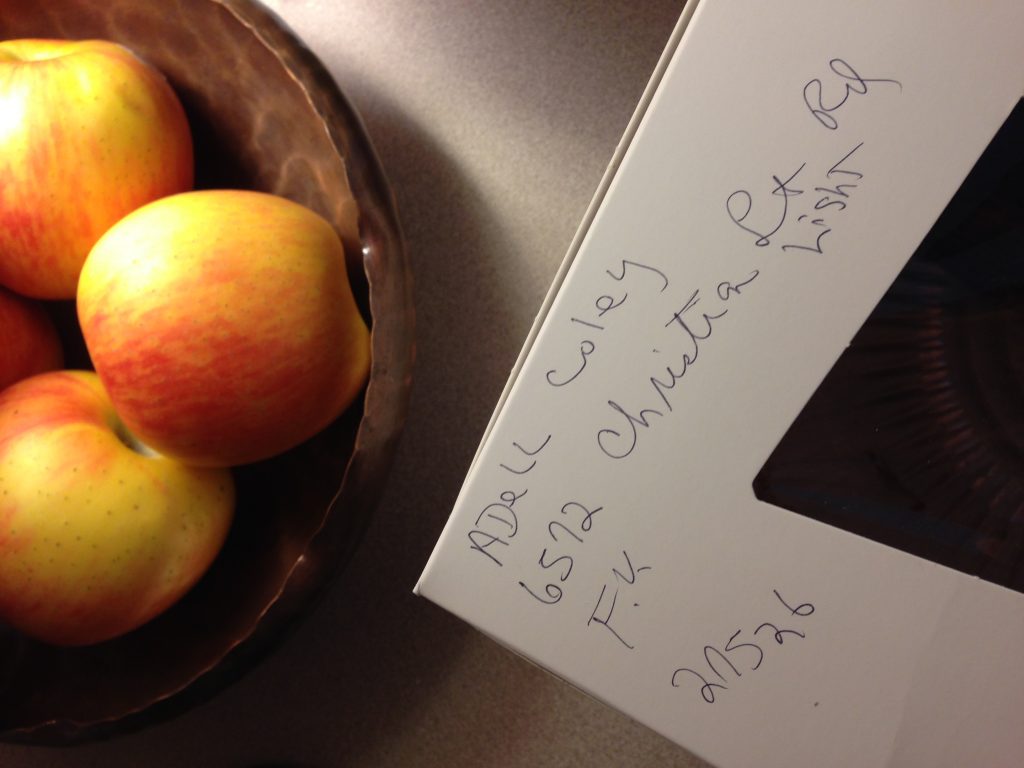 ADell Coley
6572 Christian Lt Rd
Light
F.K
27526